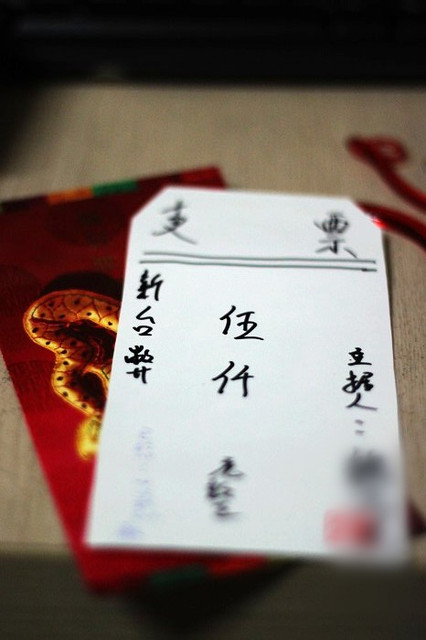 支票
新台弊
伍仟元整
立据人: